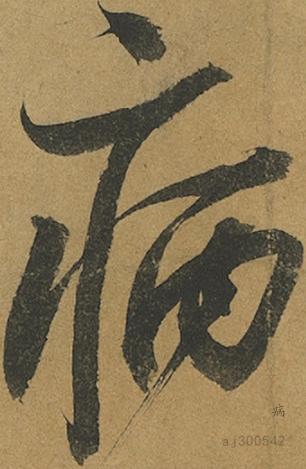 病
病
aj300542